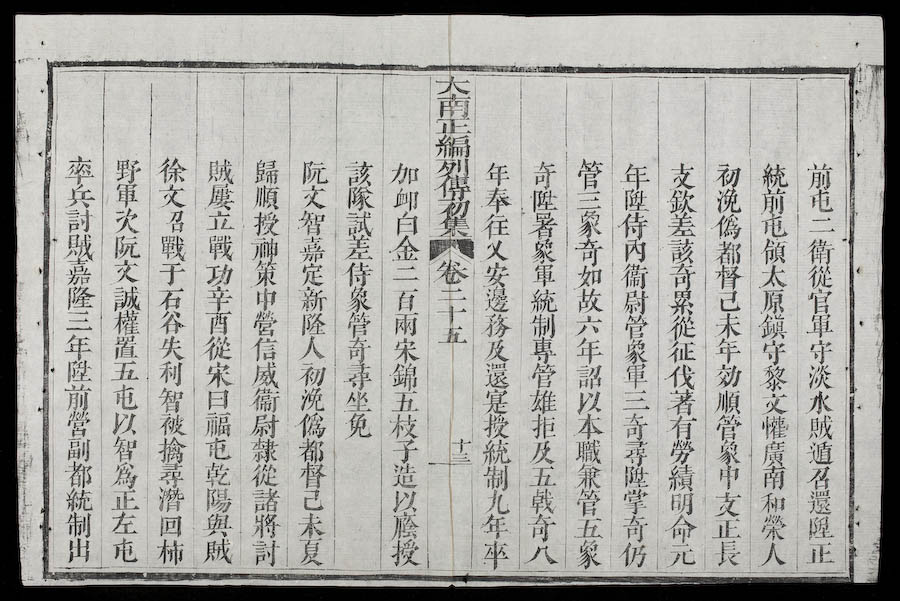 前屯二衛從官軍守淡水賊遁召還陞正
統前屯領太原鎮守黎文懽廣南和榮人
初浼僞都督己未年効順管象中支正長
支欽差該奇累從征伐著有勞績明命元
年陞侍內衞尉管象軍三奇尋陞掌奇仍
管三象奇如故六年詔以本職兼管五象
奇陞署象軍統制專管雄拒及五戟奇八
年奉往乂安邊務及還寔授統制九年卒
大南正編列傳初集
卷二十五
十三
加卹白金二百兩宋錦五枝子造以廕授
該隊試差侍象管奇尋坐免
阮文智嘉定新隆人初浼僞都督己未夏
歸順授神策中營信威衞尉隸從諸將討
賊屢立戰功辛酉從宋曰福屯乾陽與賊
徐文召戰于石谷失利智被擒尋潛回柿
野軍次阮文誠權置五屯以智爲正左屯
率兵討賊嘉隆三年陞前營副都統制出